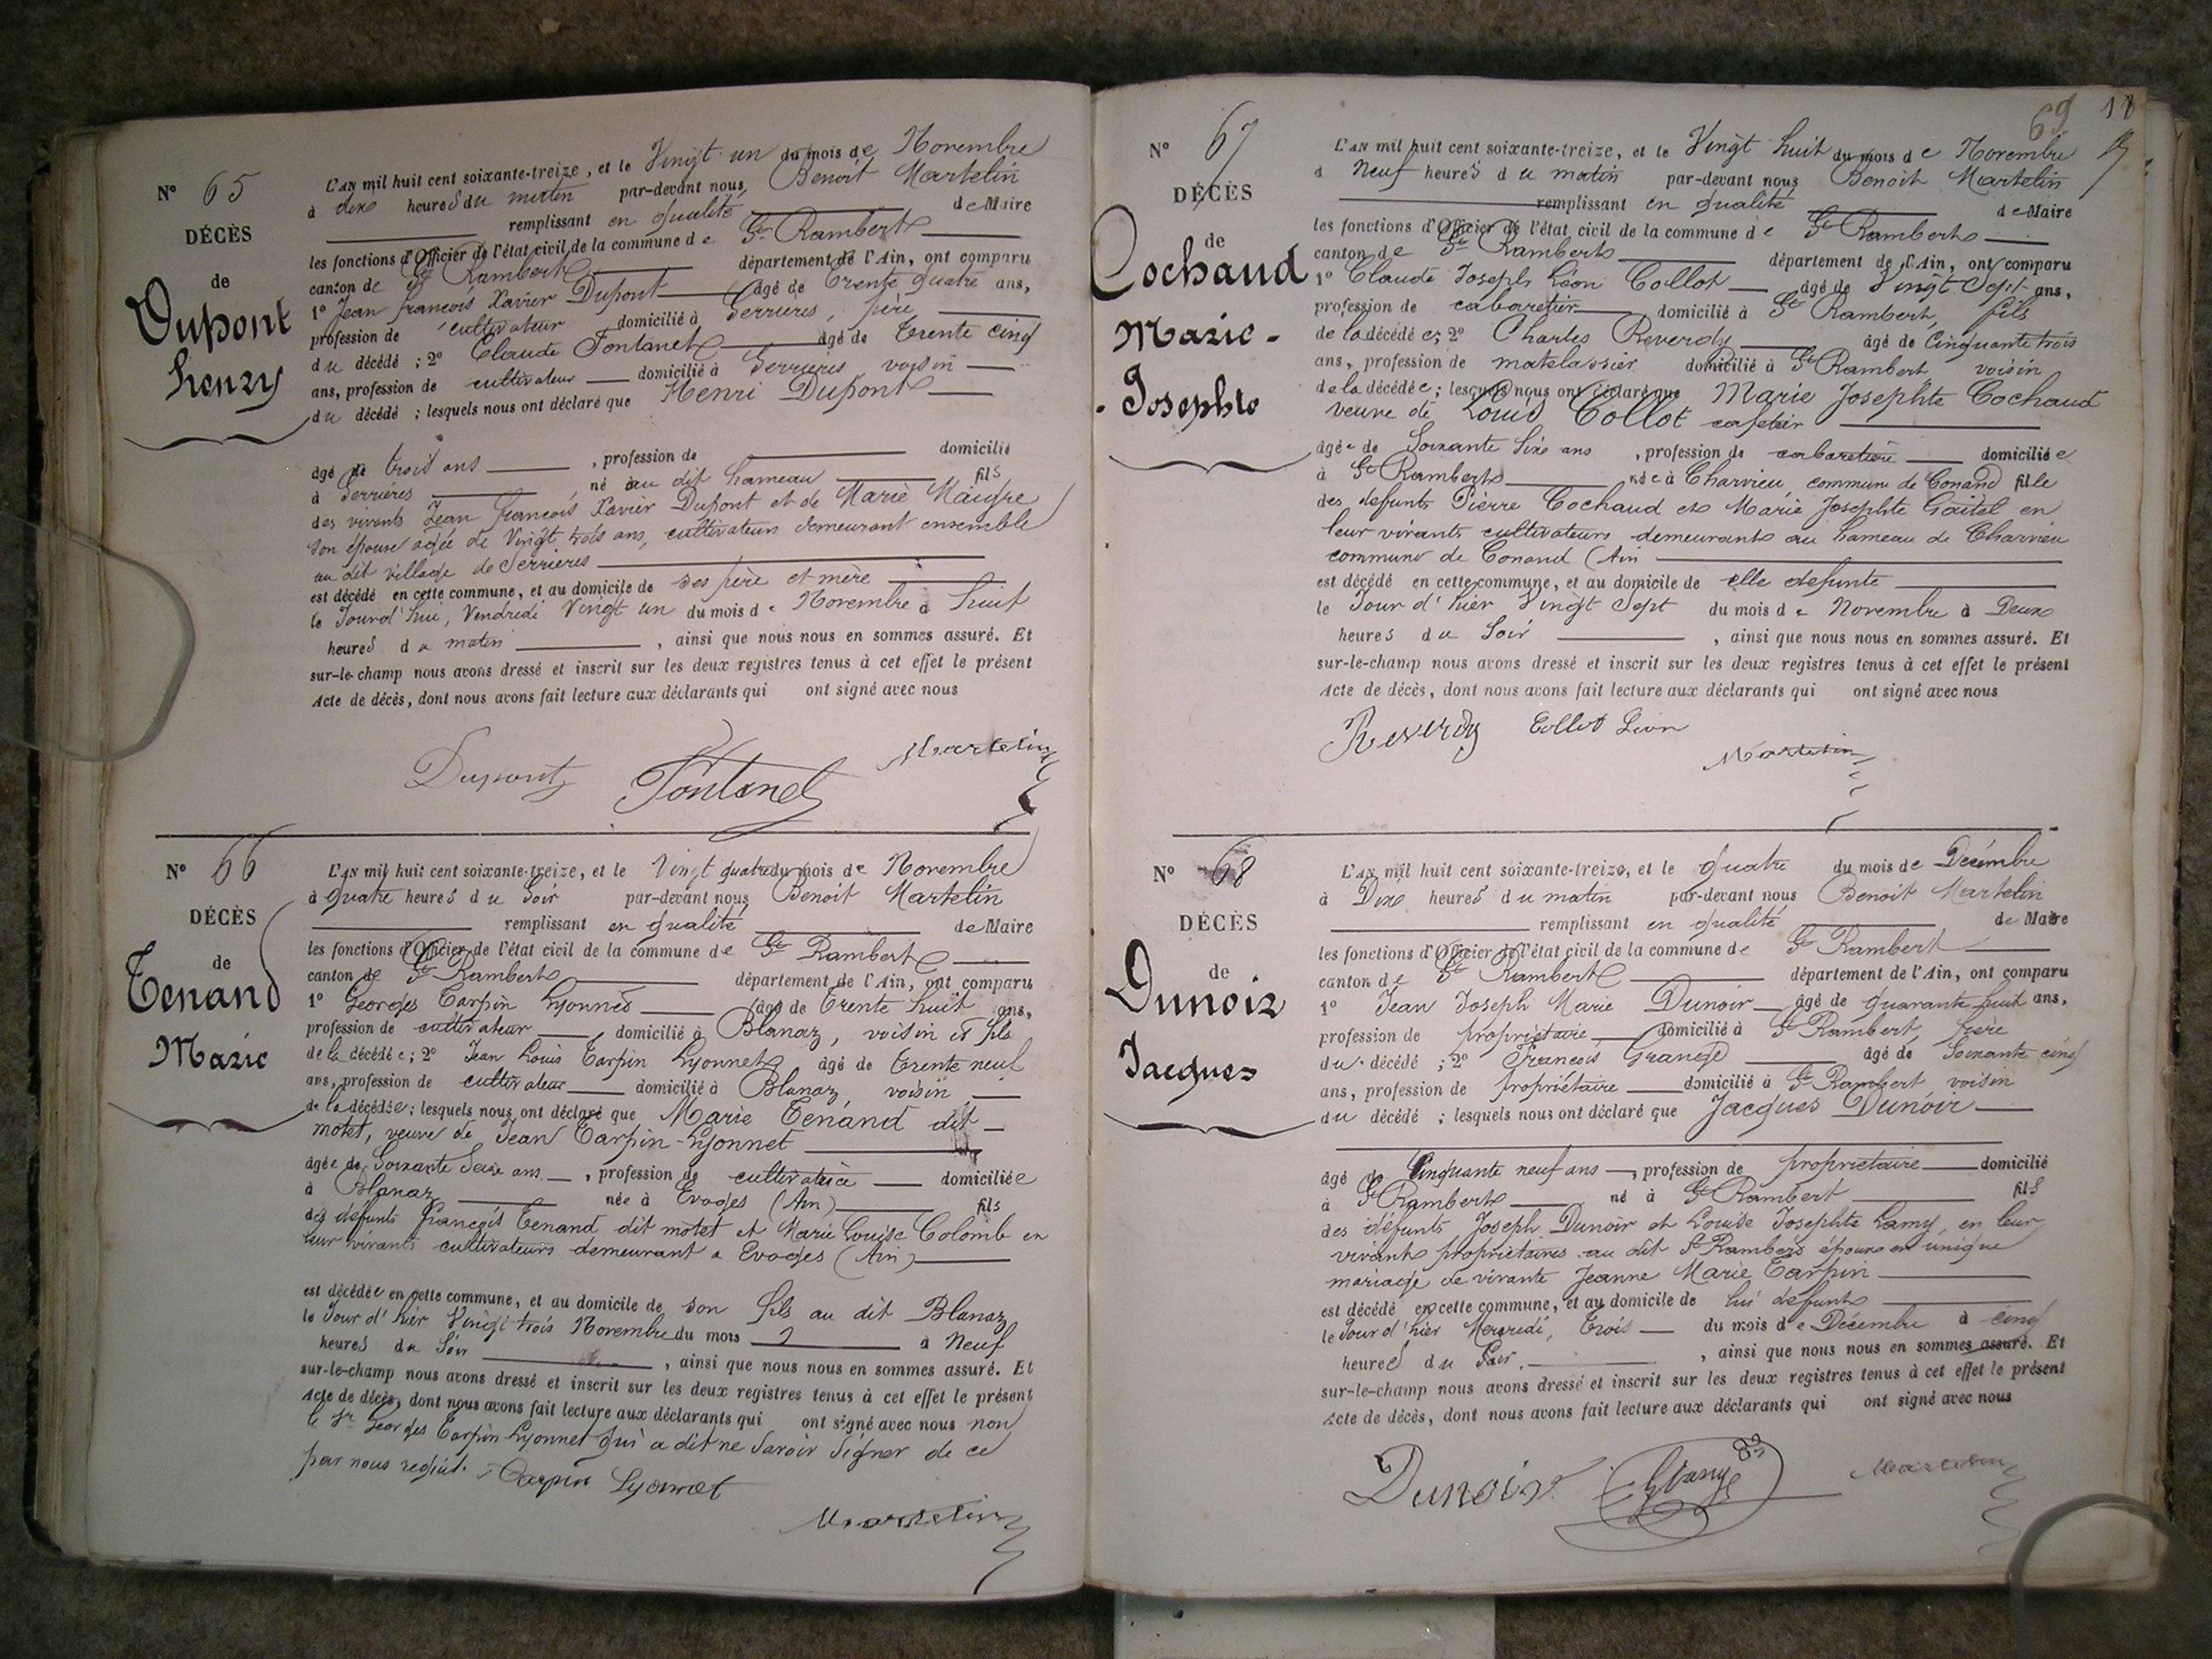 N° 65
DÉCÈS
de
Dupont
henry
L'AN mil huit cent soixante-treize, et le Vingt un du mois de Novembre
à dix heures du matin par-devant nous Benoit Martelin
remplissant en qualité de Maire
les fonctions d'Officier de l'état civil de la commune de St Rambert
canton de St Rambert département de l'Ain, ont comparu
1° Jean françois Xavier Dupont âgé de Trente quatre ans,
profession de cultivateur domicilié à Serrières, père
du décédé ; 2° Claude Fontanet âgé de Trente cinq
ans, profession de cultivateur domicilié à Serrières voisin
du décédé ; lesquels nous ont déclaré que Henri Dupont
âgé de trois ans , profession de domicilié
à Serrières , né au dit hameau fils
des vivants Jean françois Xavier Dupont et de Marie Maigre
son épouse agée de Vingt trois ans, cultivateurs demeurant ensemble
au dit village de Serrières
est décédé en cette commune, et au domicile de ses père et mère
le Jourd'hui, Vendredi Vingt un du mois de Novembre à huit
heures du matin , ainsi que nous nous en sommes assuré. Et
sur-le-champ nous avons dressé et inscrit sur les deux registres tenus à cet effet le présent
Acte de décès, dont nous avons fait lecture aux déclarants qui ont signé avec nous
Dupont Fontanet Martelin
N° 66
DÉCÈS
de
Tenand
Marie
L'AN mil huit cent soixante-treize, et le Vingt quatre du mois de Novembre
à quatre heures du Soir par-devant nous Benoit Martelin
remplissant en qualité de Maire
les fonctions d'Officier de l'état civil de la commune de St Rambert
canton de St Rambert département de l'Ain, ont comparu
1° Georges Tarpin Lyonnet âgé de Trente huit ans,
profession de cultivateur , domicilié à Blanaz, voisin et fils
de la décédée; 2° Jean Louis Tarpin Lyonnet âgé de Trente neuf
ans, profession de cultivateur domicilié à Blanaz, voisin
de la décédée; lesquels nous ont déclaré que Marie Tenand dit
motet, veuve de Jean Tarpin-Lyonnet
âgée de Soixante Seise ans , profession de cultivatrice domiciliée
à Blanaz née à Evoges (Ain) fils
des défunts françois Tenand dit motet et Marie Louise Colomb en
leur vivants cultivateurs demeurant à Evoges (Ain)
est décédée en cette commune, et au domicile de son fils au dit Blanaz
le Jour d'hier Vingt trois Novembre du mois à Neuf
heures du Soir , ainsi que nous nous en sommes assuré. Et
sur-le-champ nous avons dressé et inscrit sur les deux registres tenus à cet effet le présent
Acte de décès, dont nous avons fait lecture aux déclarants qui ont signé avec nous non
le Sr Georges Tarpin Lyonnet qui a dit ne Savoir Signer de ce
par nous requit. Tarpin Lyonnet
Martelin
69 18
N° 67
DÉCÈS
de
Cochaud
Marie-
Josephte
L'AN mil huit cent soixante-treize, et le Vingt huit du mois de Novembre
à Neuf heures du matin par-devant nous Benoit Martelin
remplissant en qualité de Maire
les fonctions d'Officier de l'état civil de la commune de St Rambert
canton de St Rambert département de l'Ain, ont comparu
1° Claude Joseph Léon Collot âgé de Vingt Sept ans,
profession de cabaretier domicilié à St Rambert, fils
de la décédée; 2° Charles Reverdy âgé de Cinquante trois
ans, profession de matelassier domicilié à St Rambert voisin
de la décédée; lesquels nous ont déclaré que Marie Josephte Cochaud
veuve de Louis Collot cafetier
âgée de Soixante Six ans , profession de cabaretière domiciliée
à St Rambert née à Charvieu, commune de Conand fille
des defunts Pierre Cochaud et Marie Josephte Goitel en
leur vivants cultivateurs demeurants au hameau de Charvieu
commune de Conand (Ain
est décédé en cette commune, et au domicile de elle defunte
le Jour d'hier Vingt Sept du mois de Novembre à Deux
heures du Soir , ainsi que nous nous en sommes assuré. Et
sur-le-champ nous avons dressé et inscrit sur les deux registres tenus à cet effet le présent
Acte de décès, dont nous avons fait lecture aux déclarants qui ont signé avec nous
Reverdy Collot Léon
Martelin
N° 68
DÉCÈS
de
Dunoir
Jacques
L'AN mil huit cent soixante-treize, et le quatre du mois de Décembre
à Dix heures du matin par-devant nous Benoit Martelin
remplissant en qualité de Maire
les fonctions d'Officier de l'état civil de la commune de St Rambert
canton de St Rambert département de l'Ain, ont comparu
1° Jean Joseph Marie Dunoir âgé de quarante huit ans,
profession de propriétaire domicilié à St Rambert, frère
du décédé ; 2° François Grange âgé de Soixante cinq
ans, profession de propriétaire domicilié à St Rambert voisin
du décédé ; lesquels nous ont déclaré que Jacques Dunoir
âgé de Cinquante neuf ans , profession de propriétaire domicilié
à St Rambert né à St Rambert fils
des défunts Joseph Dunoir et Louise Josephte Lamy, en leur
vivants propriétaires au dit St Rambert époux en unique
mariage de vivante Jeanne Marie Tarpin
est décédé en cette commune, et au domicile de lui defunt
le Jour d'hier Mercredi, Trois du mois de Décembre à cinq
heures du Soir. , ainsi que nous nous en sommes assuré. Et
sur-le-champ nous avons dressé et inscrit sur les deux registres tenus à cet effet le présent
Acte de décès, dont nous avons fait lecture aux déclarants qui ont signé avec nous
Dunoir Grange Martelin